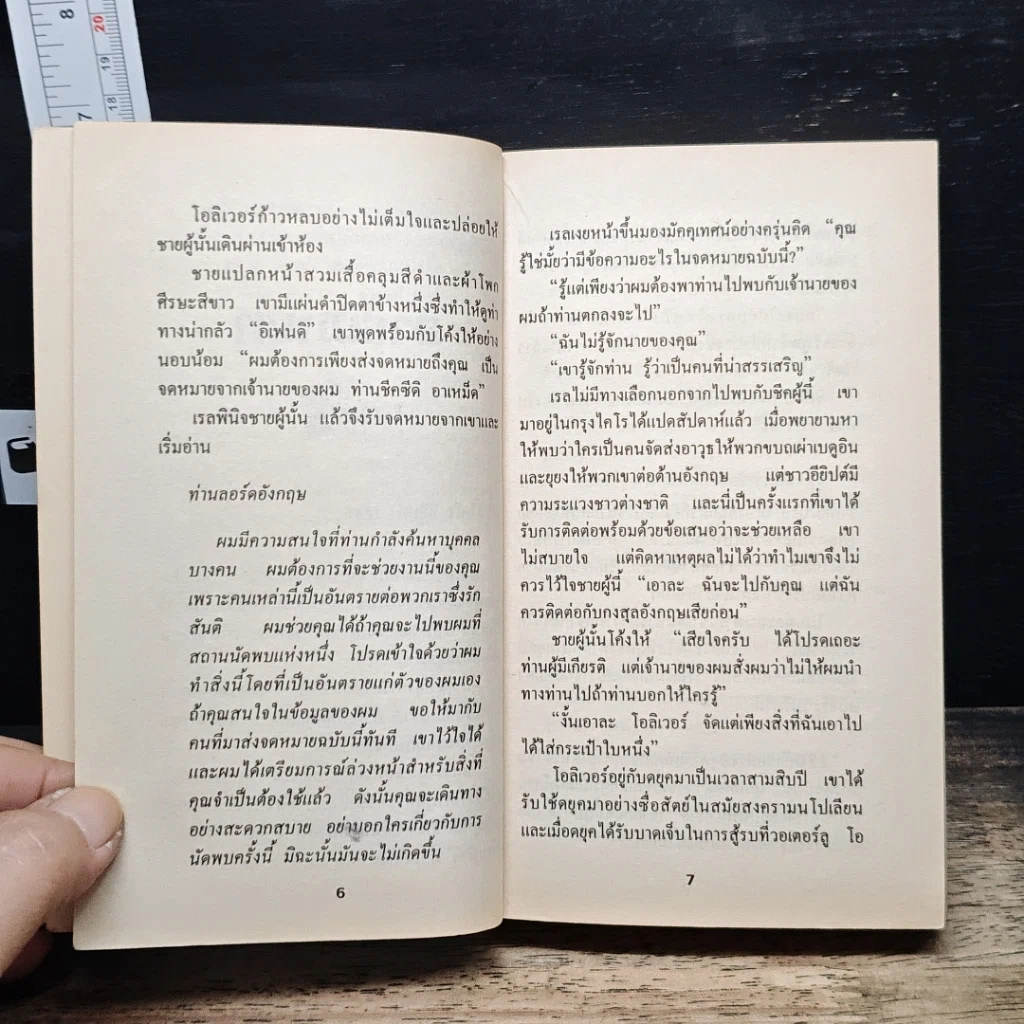 8
7
20
19
18
โอลิเวอร์ก้าวหลบอย่างไม่เต็มใจและปล่อยให้
ชายผู้นั้นเดินผ่านเข้าห้อง
ชายแปลกหน้าสวมเสื้อคลุมสีดำและผ้าโพก
ศีรษะสีขาว เขามีแผ่นดำปิดตาข้างหนึ่งซึ่งทำให้ดูท่า
ทางน่ากลัว “อิเฟนดิ” เขาพูดพร้อมกับโค้งให้อย่าง
นอบน้อม “ผมต้องการเพียงส่งจดหมายถึงคุณ เป็น
จดหมายจากเจ้านายของผม ท่านชีคซีดิ อาเหม็ด”
เรลพินิจชายผู้นั้น แล้วจึงรับจดหมายจากเขาและ
เริ่มอ่าน
ท่านลอร์ดอังกฤษ
ผมมีความสนใจที่ท่านกำลังค้นหาบุคคล
บางคน ผมต้องการที่จะช่วยงานนี้ของคุณ
เพราะคนเหล่านี้เป็นอันตรายต่อพวกเราซึ่งรัก
สันติ ผมช่วยคุณได้ถ้าคุณจะไปพบผมที่
สถานนัดพบแห่งหนึ่ง โปรดเข้าใจด้วยว่าผม
ทำสิ่งนี้โดยที่เป็นอันตรายแก่ตัวของผมเอง
ถ้าคุณสนใจในข้อมูลของผม ขอให้มากับ
คนที่มาส่งจดหมายฉบับนี้ทันที เขาไว้ใจได้
และผมได้เตรียมการณ์ล่วงหน้าสำหรับสิ่งที่
คุณจำเป็นต้องใช้แล้ว ดังนั้นคุณจะเดินทาง
อย่างสะดวกสบาย อย่าบอกใครเกี่ยวกับการ
นัดพบครั้งนี้ มิฉะนั้นมันจะไม่เกิดขึ้น
6
เรลเงยหน้าขึ้นมองมัคคุเทศน์อย่างครุ่นคิด “คุณ
รู้ใช่มั้ยว่ามีข้อความอะไรในจดหมายฉบับนี้?”
“รู้แต่เพียงว่าผมต้องพาท่านไปพบกับเจ้านายของ
ผมถ้าท่านตกลงจะไป”
“ฉันไม่รู้จักนายของคุณ”
“เขารู้จักท่าน รู้ว่าเป็นคนที่น่าสรรเสริญ”
เรลไม่มีทางเลือกนอกจากไปพบกับชีคผู้นี้ เขา
มาอยู่ในกรุงไคโรได้แปดสัปดาห์แล้ว เมื่อพยายามหา
ให้พบว่าใครเป็นคนจัดส่งอาวุธให้พวกขบถเผ่าเบดูอิน
และยุยงให้พวกเขาต่อต้านอังกฤษ แต่ชาวอียิปต์มี
ความระแวงชาวต่างชาติ และนี่เป็นครั้งแรกที่เขาได้
รับการติดต่อพร้อมด้วยข้อเสนอว่าจะช่วยเหลือ เขา
ไม่สบายใจ แต่คิดหาเหตุผลไม่ได้ว่าทำไมเขาจึงไม่
ควรไว้ใจชายผู้นี้ “เอาละ ฉันจะไปกับคุณ แต่ฉัน
ควรติดต่อกับกงสุลอังกฤษเสียก่อน”
ชายผู้นั้นโค้งให้ “เสียใจครับ ได้โปรดเถอะ
ท่านผู้มีเกียรติ แต่เจ้านายของผมสั่งผมว่าไม่ให้ผมนำ
ทางท่านไปถ้าท่านบอกให้ใครรู้”
“งั้นเอาละ โอลิเวอร์ จัดแต่เพียงสิ่งที่ฉันเอาไป
ได้ใส่กระเป๋าใบหนึ่ง”
โอลิเวอร์อยู่กับดยุคมาเป็นเวลาสามสิบปี เขาได้
รับใช้ดยุคมาอย่างซื่อสัตย์ในสมัยสงครามนโปเลียน
และเมื่อดยุคได้รับบาดเจ็บในการสู้รบที่วอเตอร์ลู โอ
7